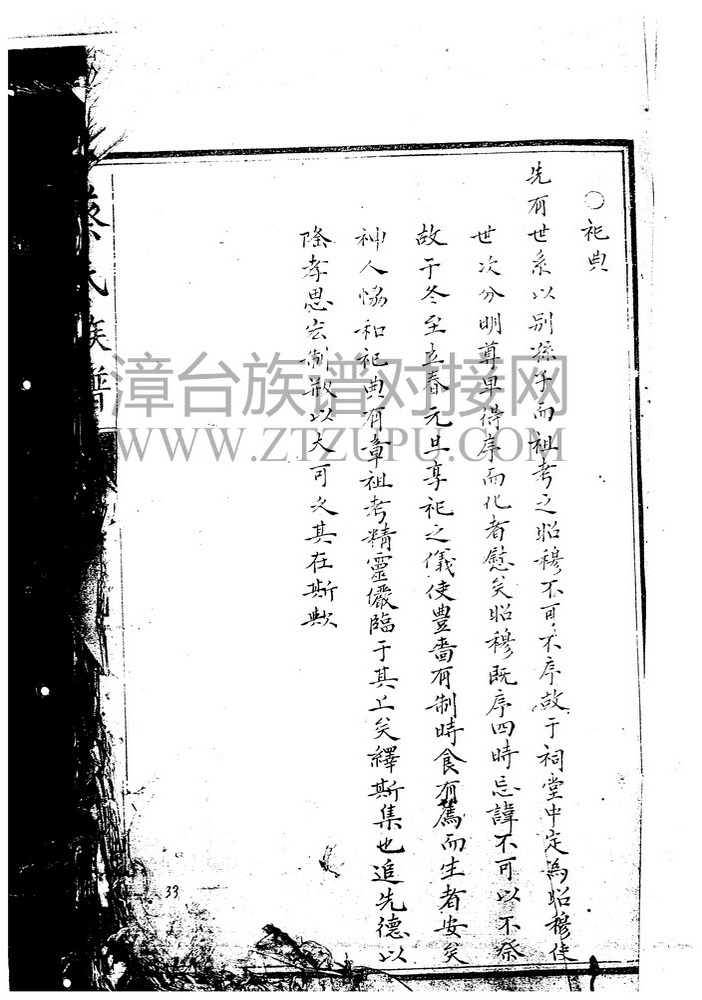 ○祀典
先有世系以别孫子而祖考之昭穆不可不序故于祠堂中定為昭穆使
世次分明尊卑得序而化者慰矣昭穆既序四時忌諱不可以不祭
故于冬至立春元旦享祀之儀使豊嗇有制時食有薦而生者安矣
神人恊和祀典有章祖考精靈儼臨于其上矣繹斯集也追先德以
隆孝思宏制敬以大可久其在斯歟
蔡氏族譜
33
漳台族谱对接网
WWW.ZTZUPU.COM